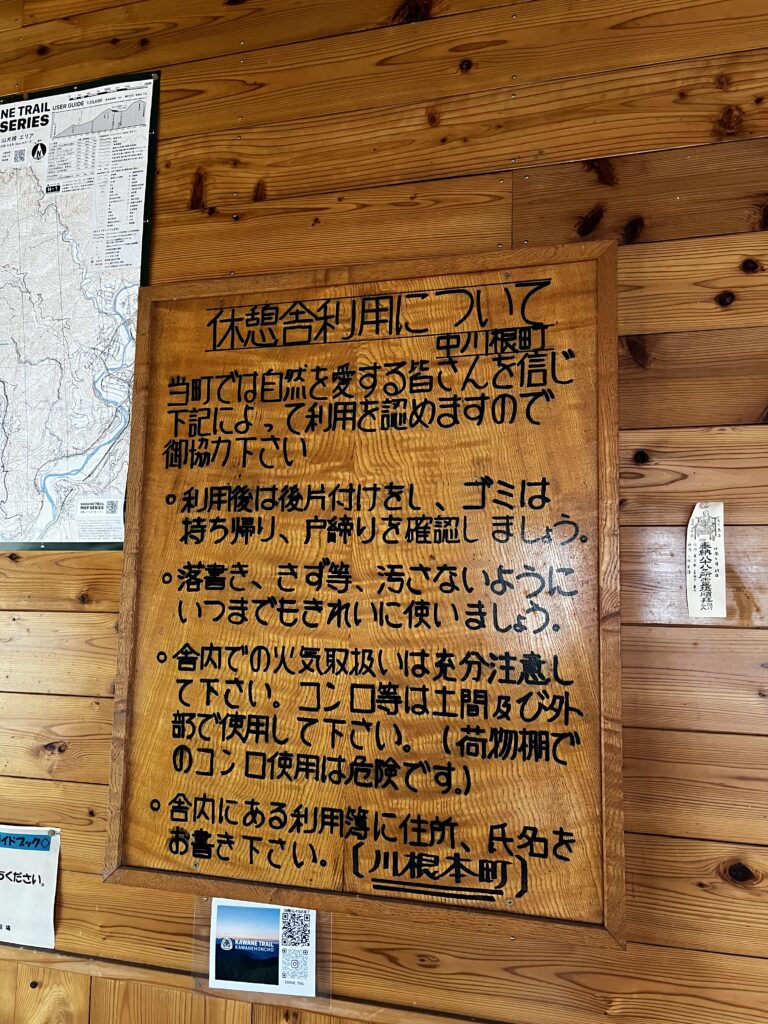 NE TRAIL
SERIES
USER GUIDE
休憩舎利用について
中川根町
当町では自然を愛する皆さんを信じ
下記によって利用を認めますので
御協力下さい
○利用後は後片付けをし、ゴミは
持ち帰り、戸締りを確認しましょう。
○落書き、きず等、汚さないように
いつまでもきれいに使いましょう。
○舎内での火気取扱いは充分注意し
て下さい。コンロ等は土間及び外
部で使用して下さい。(荷物棚で
のコンロ使用は危険です。)
○舎内にある利用簿に住所、氏名を
お書き下さい。
〔川根本町〕
KAWANE TRAIL
MAP SERIES
イドブック◇
ください。
KAWANE TRAIL
KAWANEHONCHO